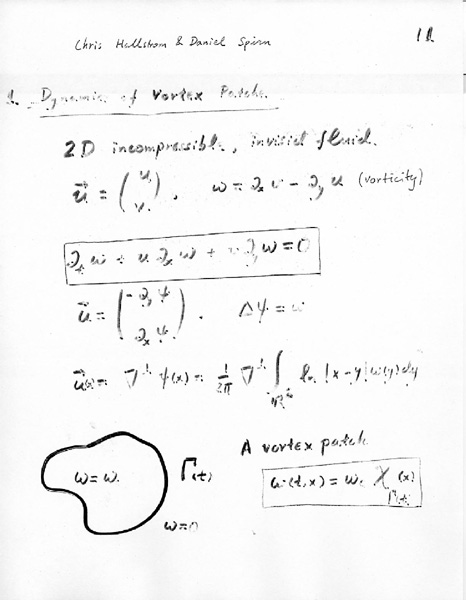 Chris Hallstrom & Daniel Spirn
1. Dynamics of Vortex Patch.
2D incompressible, inviscid fluid.
u⃗ = (u, v). ω = ∂x v − ∂y u (vorticity)
∂t ω + u ∂x ω + v ∂y ω = 0
u⃗ = (−∂y ψ, ∂x ψ). Δψ = ω
u⃗(x) = ∇^⊥ ψ(x) = 1/2π ∇^⊥ ∫_ℝ² ln |x−y| ω(y) dy
A vortex patch
ω = ω₀ Γ(t)
ω(t,x) = ω₀ χ_Γ(t) (x)
ω=0